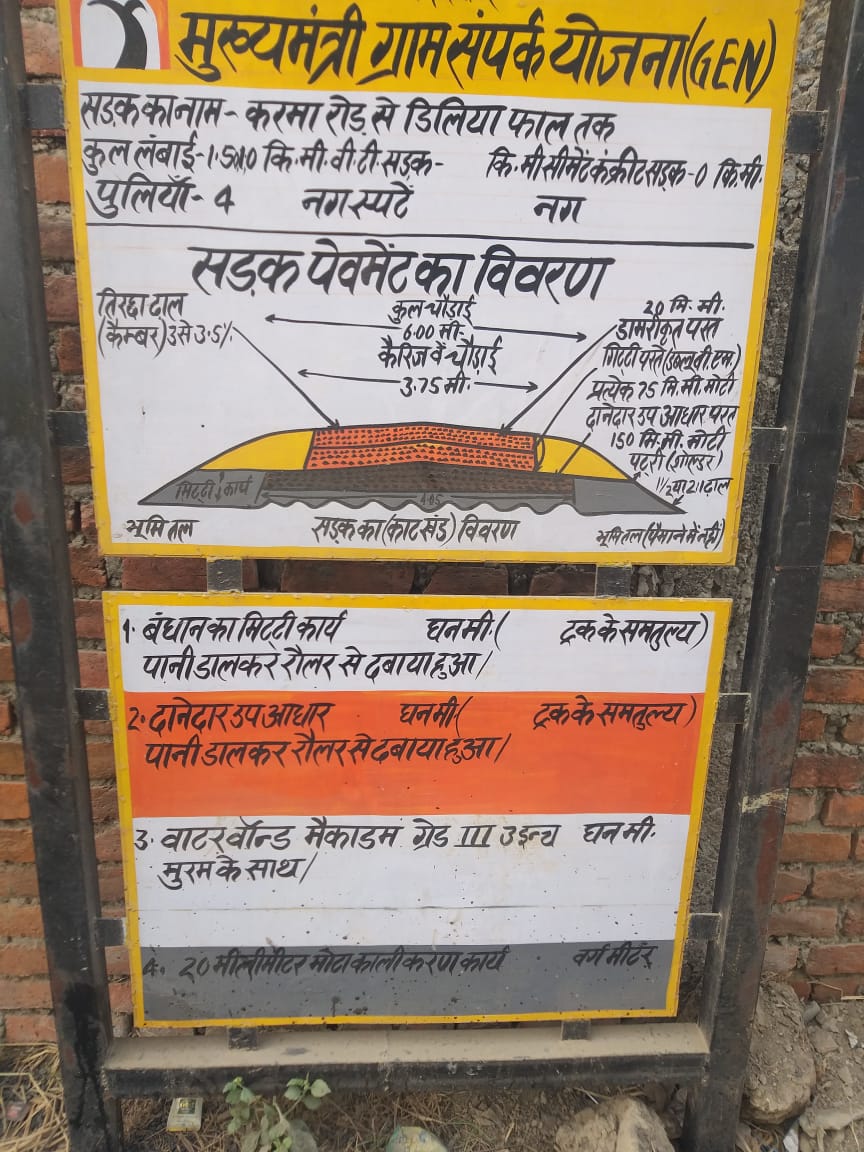 मुख्यमंत्री ग्राम संपर्क योजना (GEN)
सड़क का नाम - करमा रोड़ से डिलिया फाल तक
कुल लंबाई - 1.5010 कि.मी. वी.टी. सड़क - कि.मी सीमेंट कंक्रीट सड़क - 0 कि.मी.
पुलियाँ - 4 नग स्पटें नग
सड़क पेवमेंट का विवरण
तिरछा ढाल
(कैम्बर) 3 से 3.5%
कुल चौड़ाई
6.00 मी.
कैरिज वे चौड़ाई
3.75 मी.
20 मि. मी.
डामरीकृत परत
गिट्टी परते (डब्लू.बी.एम.)
प्रत्येक 75 मि.मी. मोटी
दानेदार उप आधार परत
150 मि.मी. मोटी
पटरी (शोल्डर)
1 1/2 या 2:1 ढाल
मिट्टी कार्य
4.05
भूमि तल
सड़क का (काट खंड) विवरण
भूमि तल (पैमाने में नहीं)
1. बंधान का मिट्टी कार्य घन मी. ( ट्रक के समतुल्य)
पानी डालकर रौलर से दबाया हुआ।
2. दानेदार उप आधार घन मी. ( ट्रक के समतुल्य)
पानी डालकर रौलर से दबाया हुआ।
3. वाटर वॉन्ड मैकाडम ग्रेड III 3 इन्च घन मी.
मुरम के साथ।
4. 20 मीलीमिटर मोटा कालीकरण कार्य वर्ग मीटर